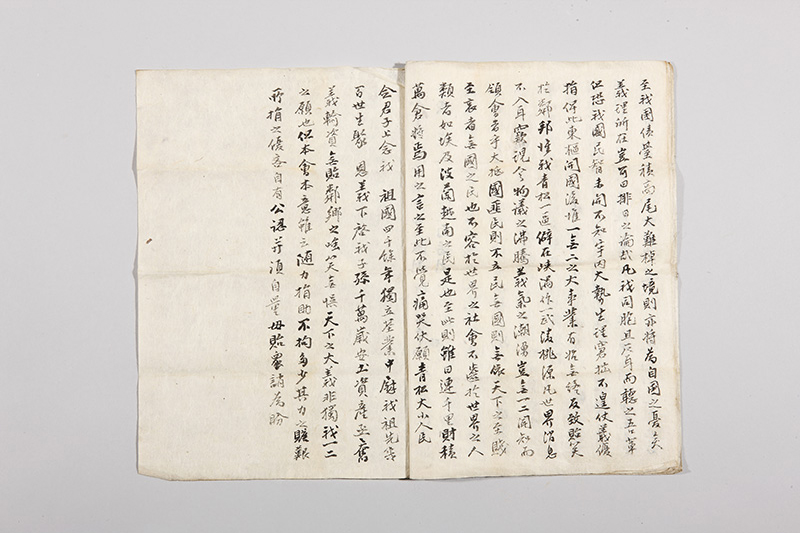 至我國債疊積高尾大難棹之境則亦將爲自國之憂矣
義理所在豈可曰排日之論哉凡我同胞且反身而聽之吾輩
但恐我國民智未開不知宇內大勢生徑窘拙不遑仗義優
捐俾此東樞開國後惟一無二之大事業有始無終反致貽笑
於鄰邦惟我靑松一區僻在峽滿作一武陵桃源凡世界消息
不入耳竊視今物議之沸騰義氣之潮湧豈無一二聞知而
領會者乎大抵國匪民則不立民無國則無依天下之至賤
至哀者無國之民也不容於世界之社會不齒於世界之人
類者如埃及波蘭越南之民是也至此則雖田連千里財積
萬倉將焉用之言之至此不覺痛哭伏願靑松大小人民
僉君子上念我 祖國四千餘年獨立基業中慰我祖先
百世生聚 恩義下啓我子孫千萬歲安土資産亟奮
義輸資無貽鄰鄕之嗤笑無愼天下之大義非獨我一二
之願也但本會本意雖云隨力捐助不拘多少其力之贍艱
所捐之優吝自有公認并須自量毋貽衆誚爲盼